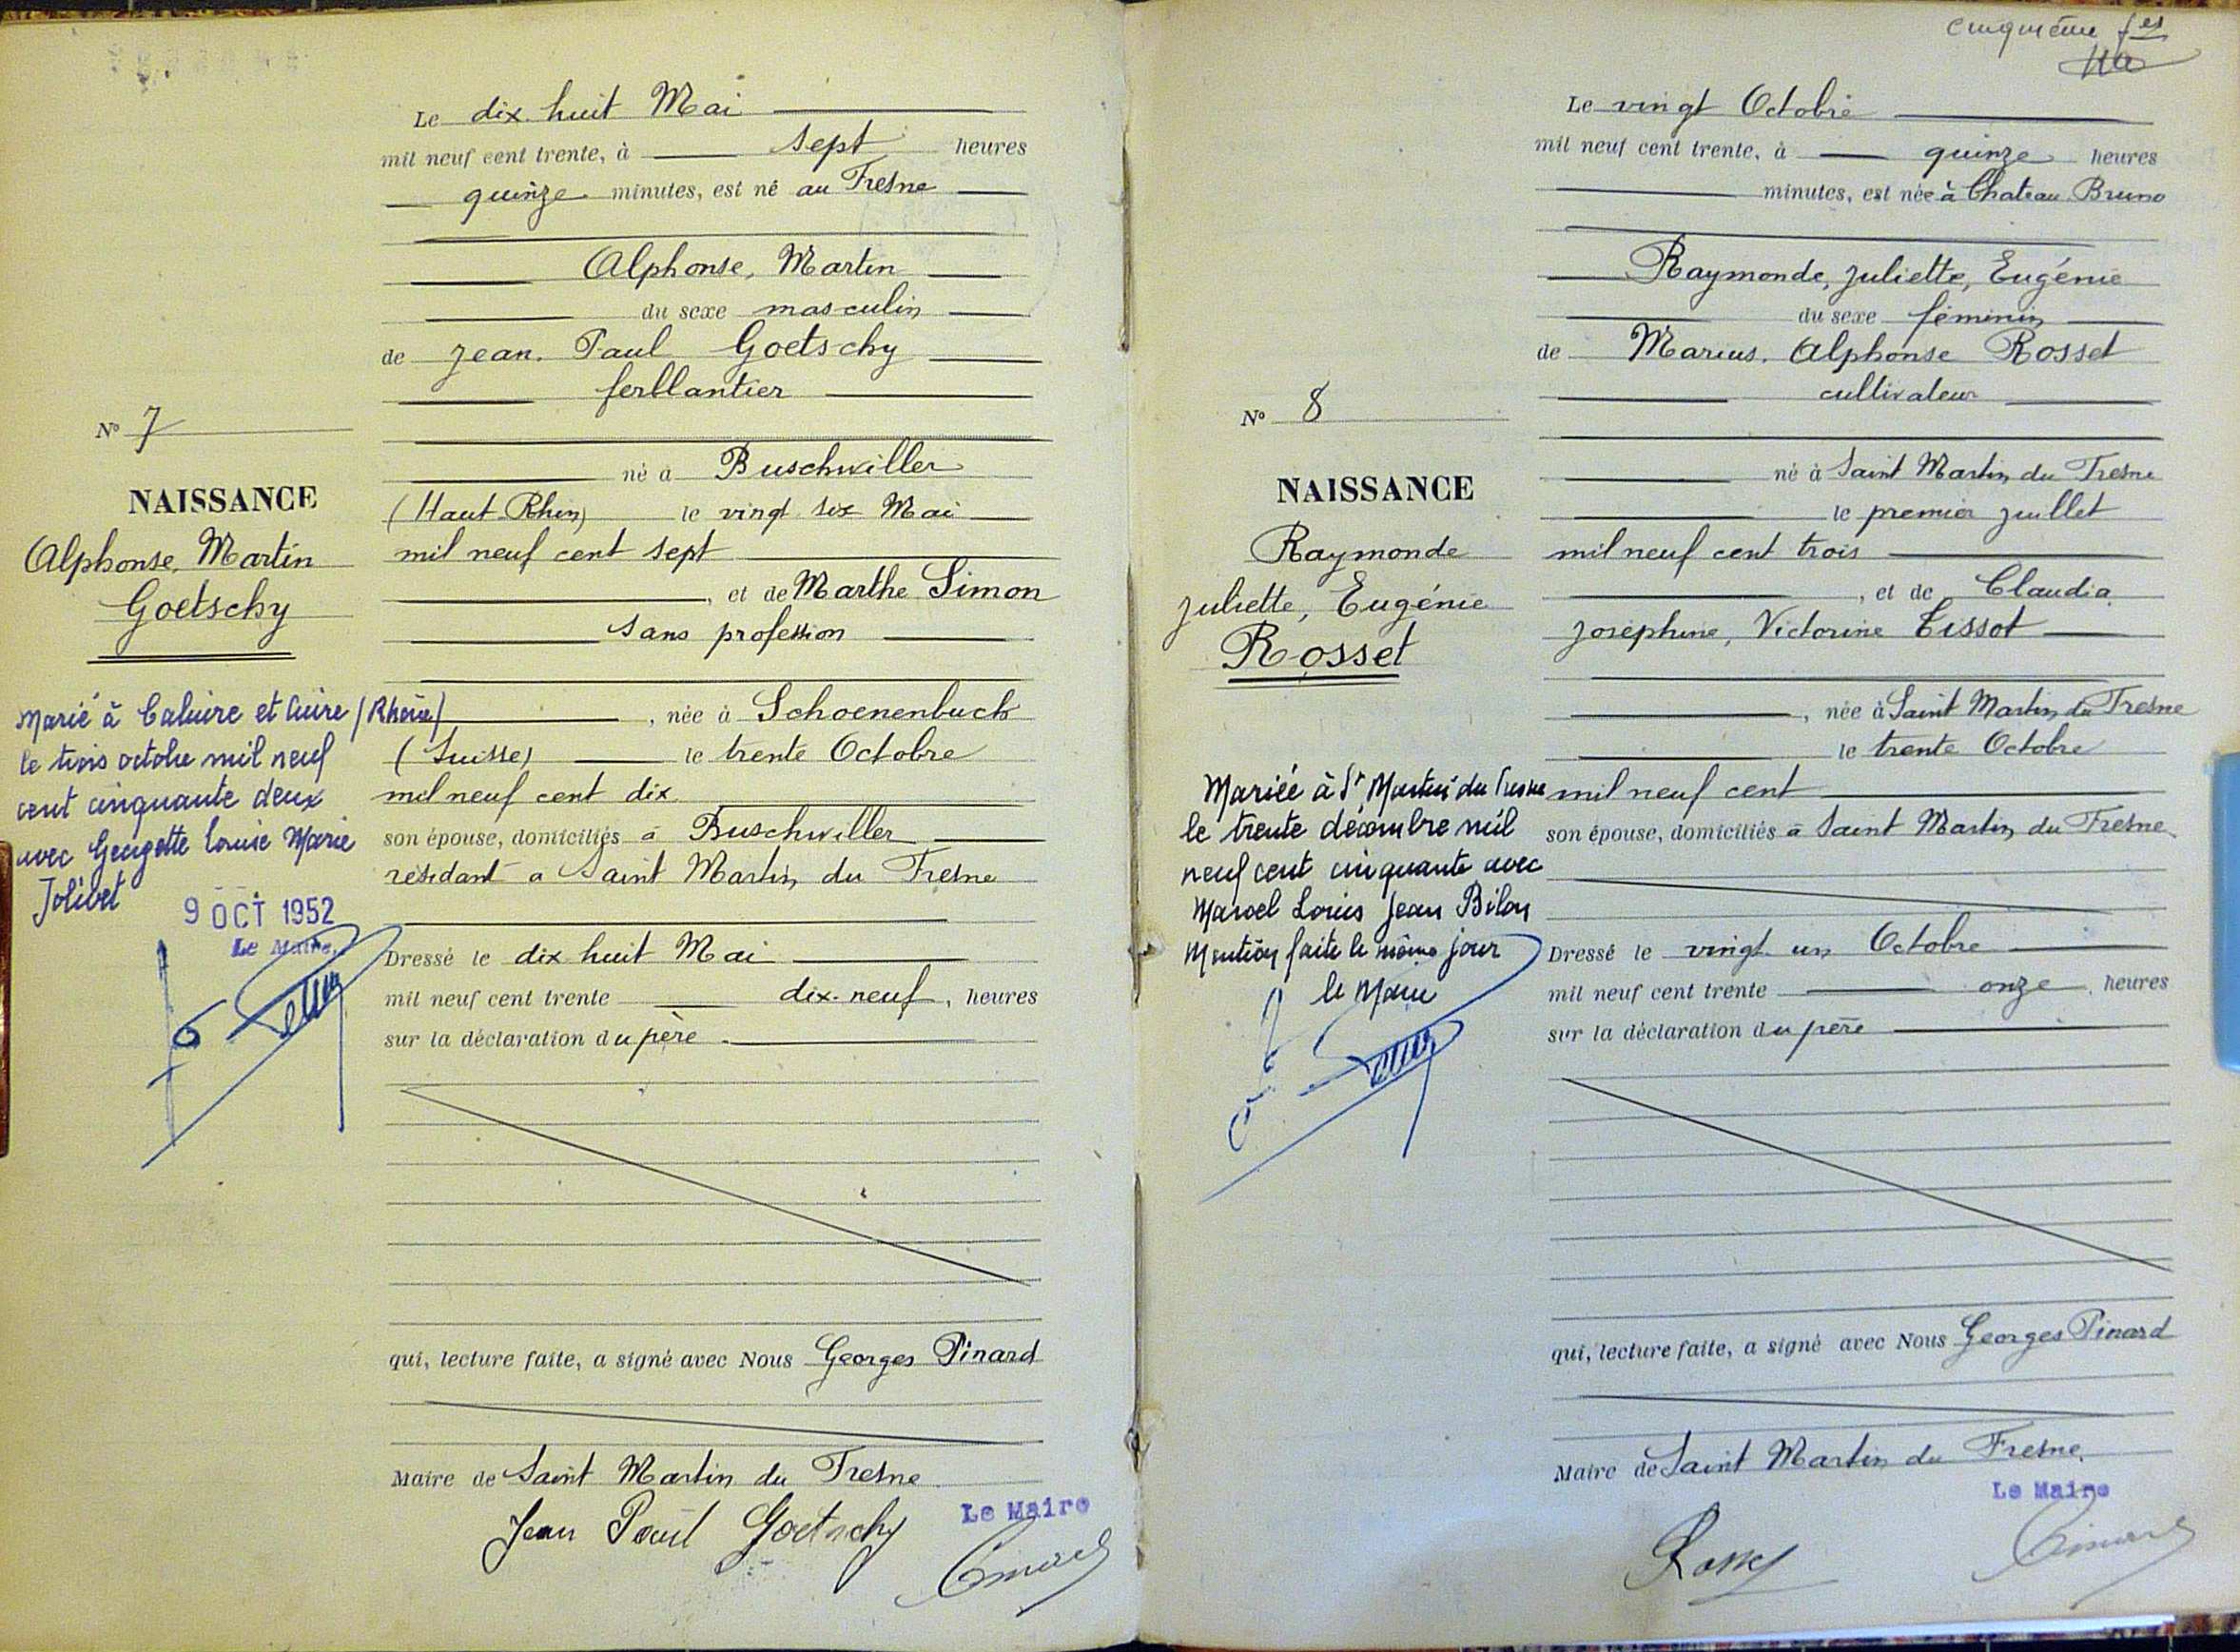 Le dix huit Mai
mil neuf cent trente, à sept heures
quinze minutes, est né au Fresne
Alphonse, Martin
du sexe masculin
de Jean. Paul Goetschy
ferblantier
né à Buschwiller
(Haut-Rhin) le vingt six Mai
mil neuf cent sept
, et de Marthe Simon
sans profession
, née à Schoenenbuch
(Suisse) le trente Octobre
mil neuf cent dix
son épouse, domiciliés à Buschwiller
résidant a Saint Martin du Fresne
Dressé le dix huit Mai
mil neuf cent trente dix-neuf, heures
sur la déclaration du père.
qui, lecture faite, a signé avec Nous Georges Pinard
Maire de Saint Martin du Fresne.
Jean Paul Goetschy
Le Maire
Pinard
N° 7
NAISSANCE
Alphonse, Martin
Goetschy
Marié à Caluire et Cuire (Rhône)
le trois octobre mil neuf
cent cinquante deux
avec Georgette Louise Marie
Jolivet
9 OCT 1952
Le Maire,
cinquième
Le vingt Octobre
mil neuf cent trente, à quinze heures
minutes, est née à Chateau Bruno
Raymonde, Juliette, Eugénie
du sexe féminin
de Marius. Alphonse Rosset
cultivateur
né à Saint Martin du Fresne
le premier Juillet
mil neuf cent trois
, et de Claudia
Joséphine, Victorine Tissot
, née à Saint Martin du Fresne
le trente Octobre
mil neuf cent
son épouse, domiciliés à Saint Martin du Fresne
Dressé le vingt-un Octobre
mil neuf cent trente onze, heures
sur la déclaration du père
qui, lecture faite, a signé avec Nous Georges Pinard
Maire de Saint Martin du Fresne.
Le Maire
Rosset
Pinard
N° 8
NAISSANCE
Raymonde
Juliette, Eugénie
Rosset
Mariée à St Martin du Fresne
le trente décembre mil
neuf cent cinquante avec
Marcel Louis Jean Bilon
Mention faite le même jour
le Maire